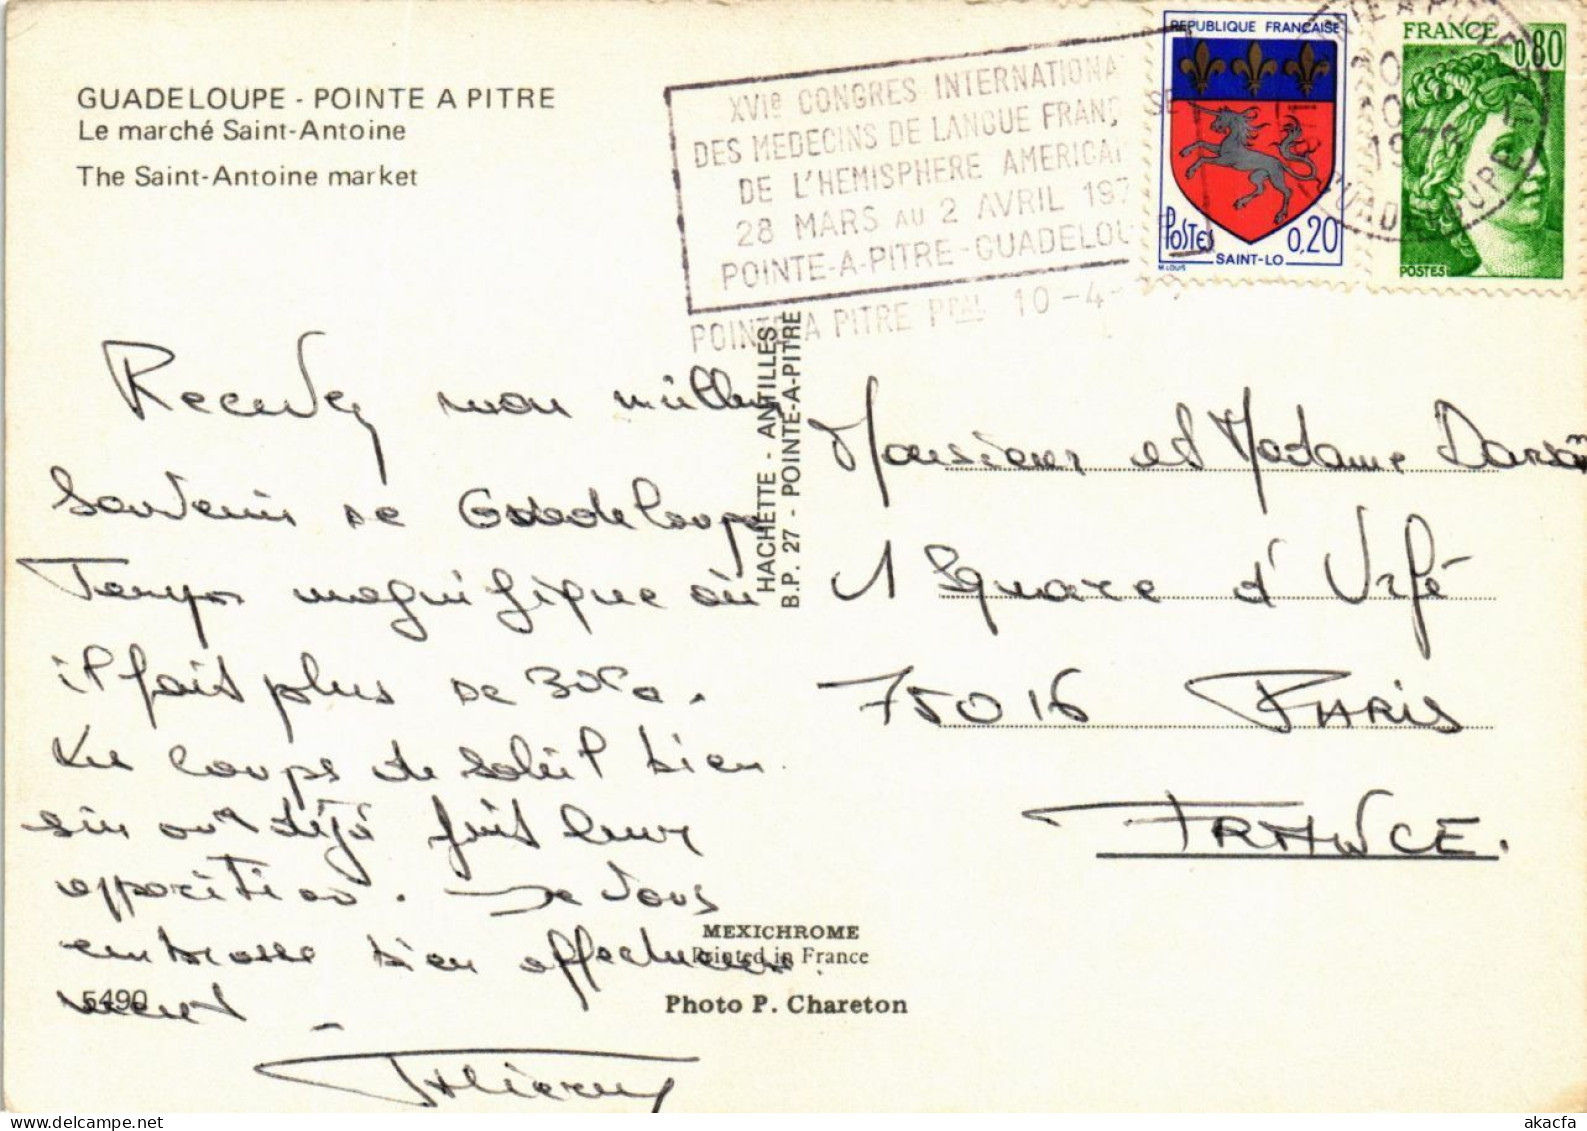 GUADELOUPE - POINTE A PITRE
Le marché Saint-Antoine
The Saint-Antoine market
XVIe CONGRES INTERNATIONA
DES MEDECINS DE LANGUE FRANÇ SE
DE L'HEMISPHERE AMERICAI
28 MARS AU 2 AVRIL 197
POINTE-A-PITRE-GUADELOU E
POINTE A PITRE PPAL 10-4-
REPUBLIQUE FRANÇAISE
POSTES 0,20
SAINT-LO
M. LOUIS
FRANCE 0,80
POSTES
1978
GUADELOUPE
HACHETTE - ANTILLES
B.P. 27 - POINTE-A-PITRE
Recevez mon meilleur
souvenir de Guadeloupe
Temps magnifique où
il fait plus de 30°.
Les coups de soleil bien
sûr ont déjà fait leur
apparition. Je vous
embrasse bien affectueuse
ment -
Thierry
Monsieur et Madame
1 Square d'Urfé
75016 PARIS
FRANCE.
MEXICHROME
Printed in France
5490
Photo P. Chareton
delcampe.net
akacfa